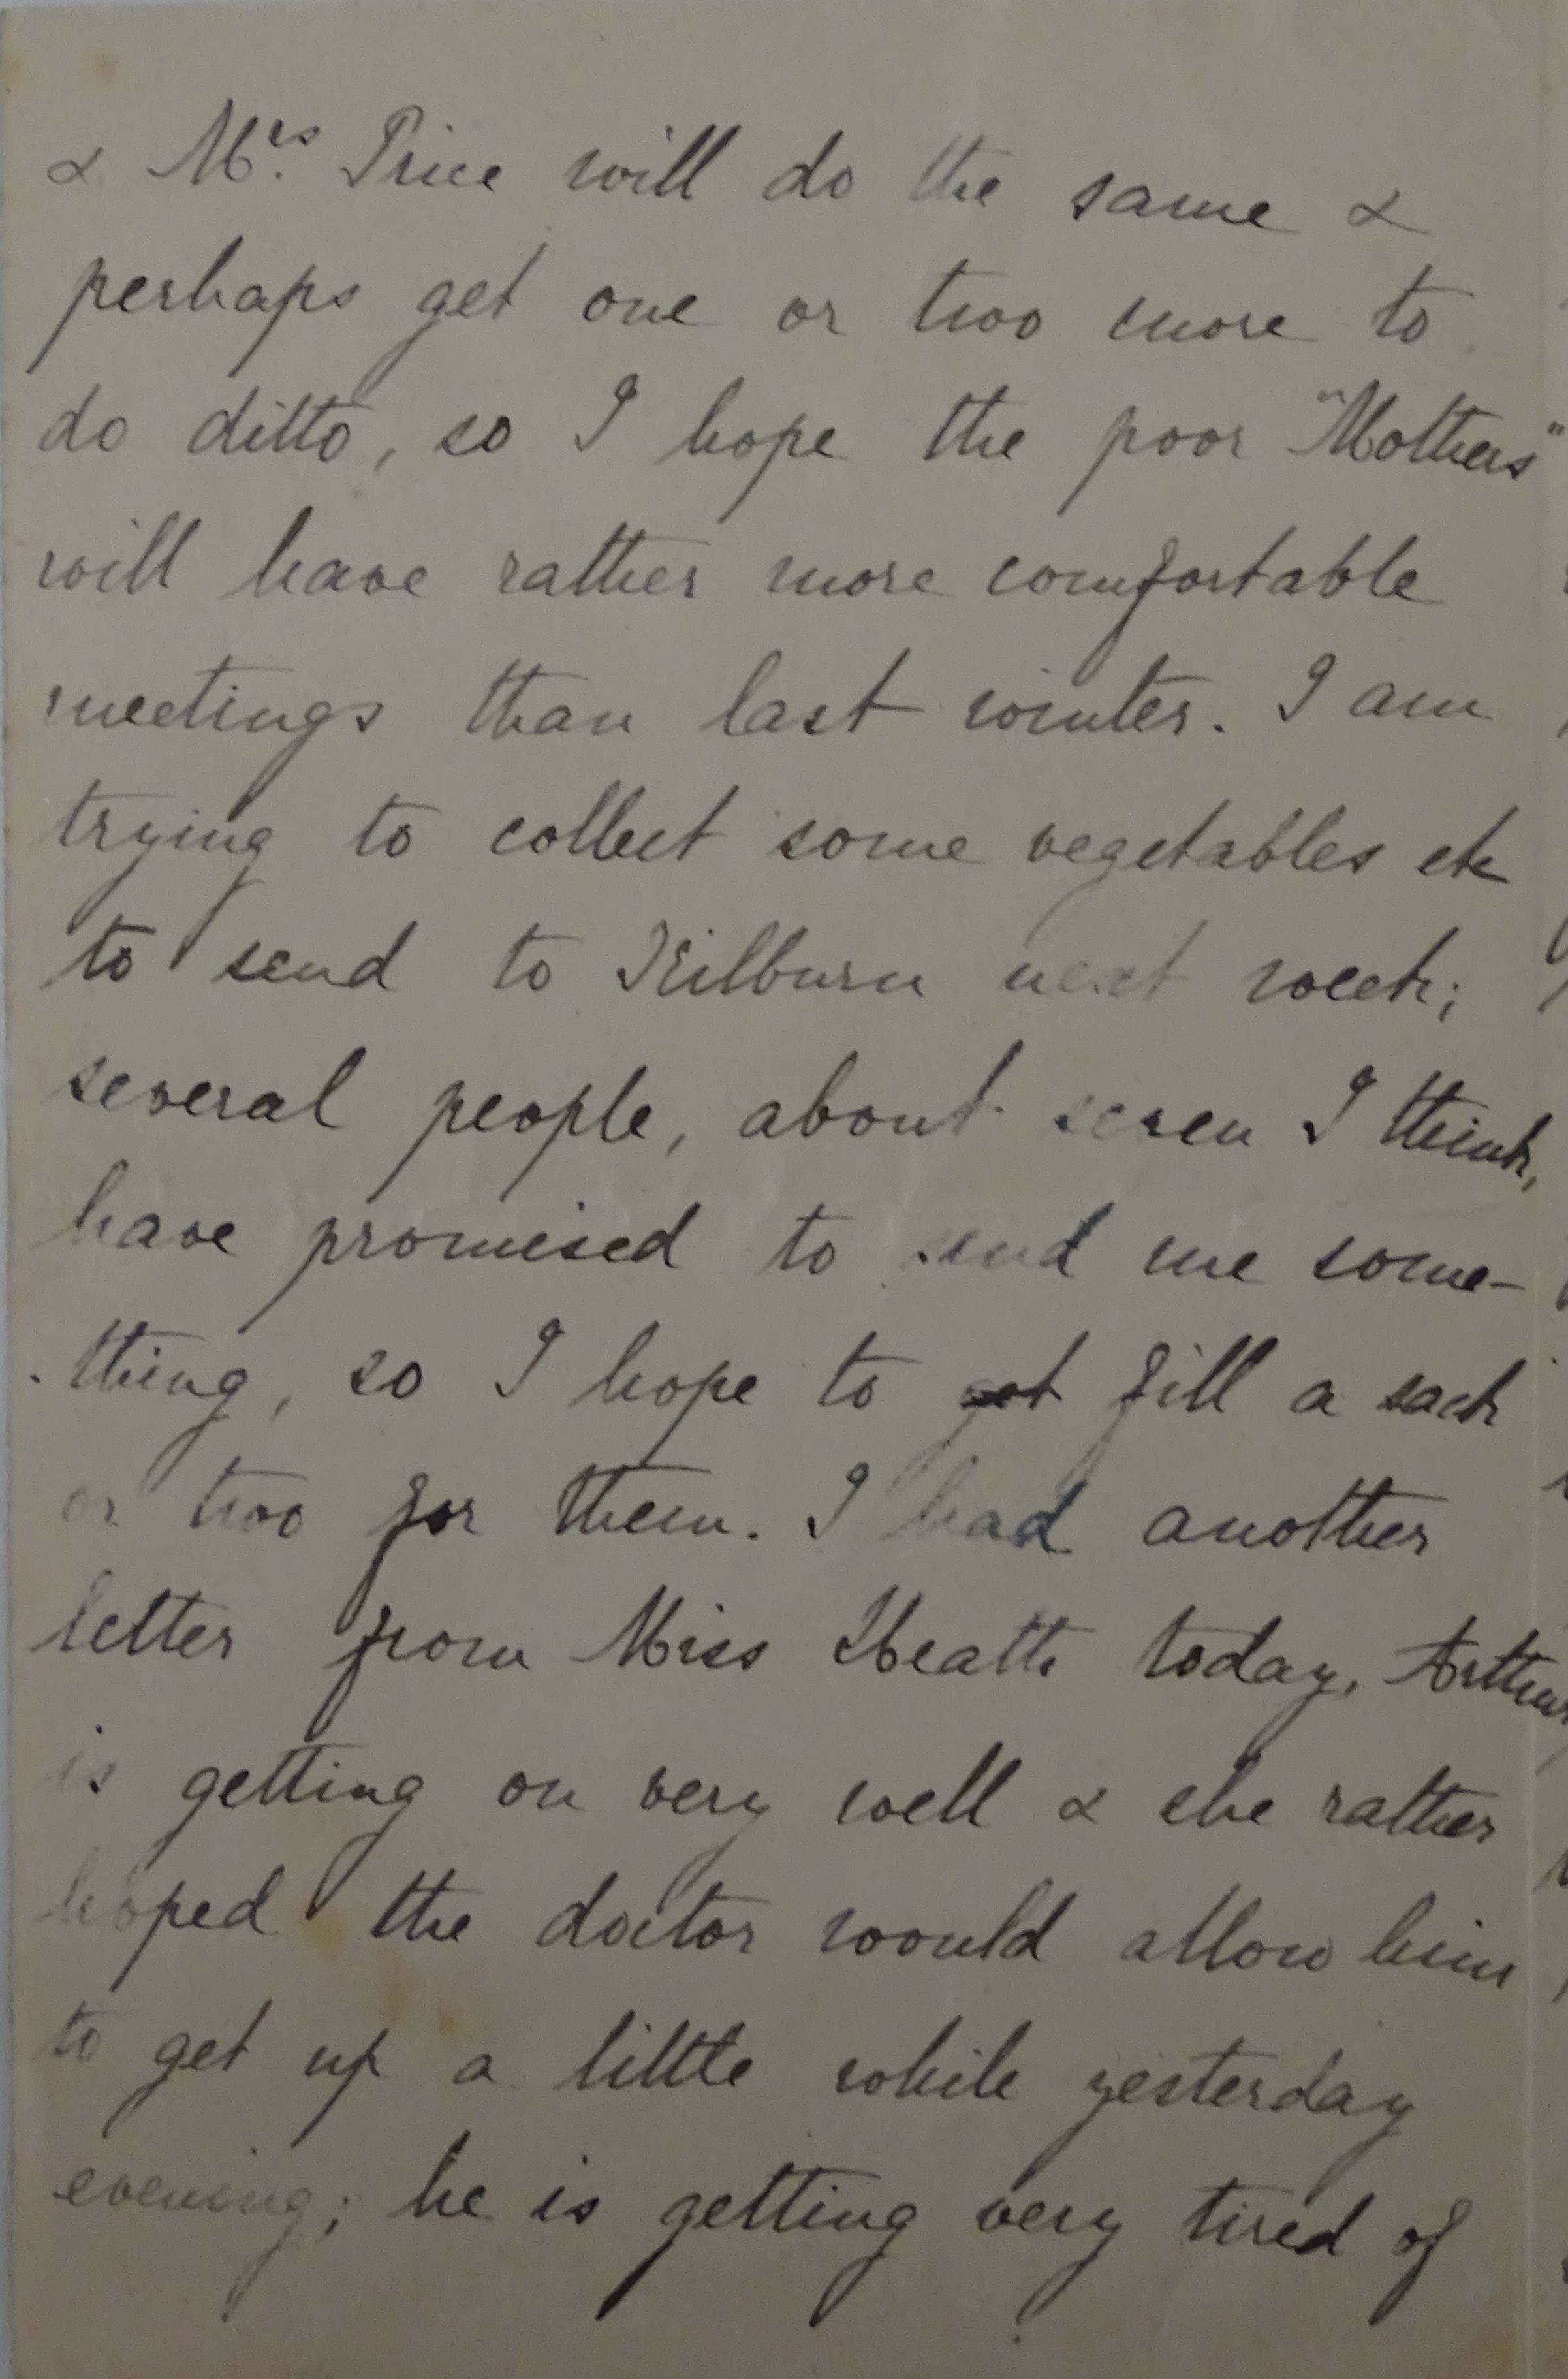 & Mrs. Price will do the same &
perhaps get one or two more to
do ditto, so I hope the poor "Mothers"
will have rather more comfortable
meetings than last winter. I am
trying to collect some vegetables etc
to send to Kilburn next week;
several people, about seven I think,
have promised to send me some-
-thing, so I hope to get fill a sack
or two for them. I had another
letter from Miss Heath today, Arthur
is getting on very well & she rather
hoped the doctor would allow him
to get up a little while yesterday
evening; he is getting very tired of